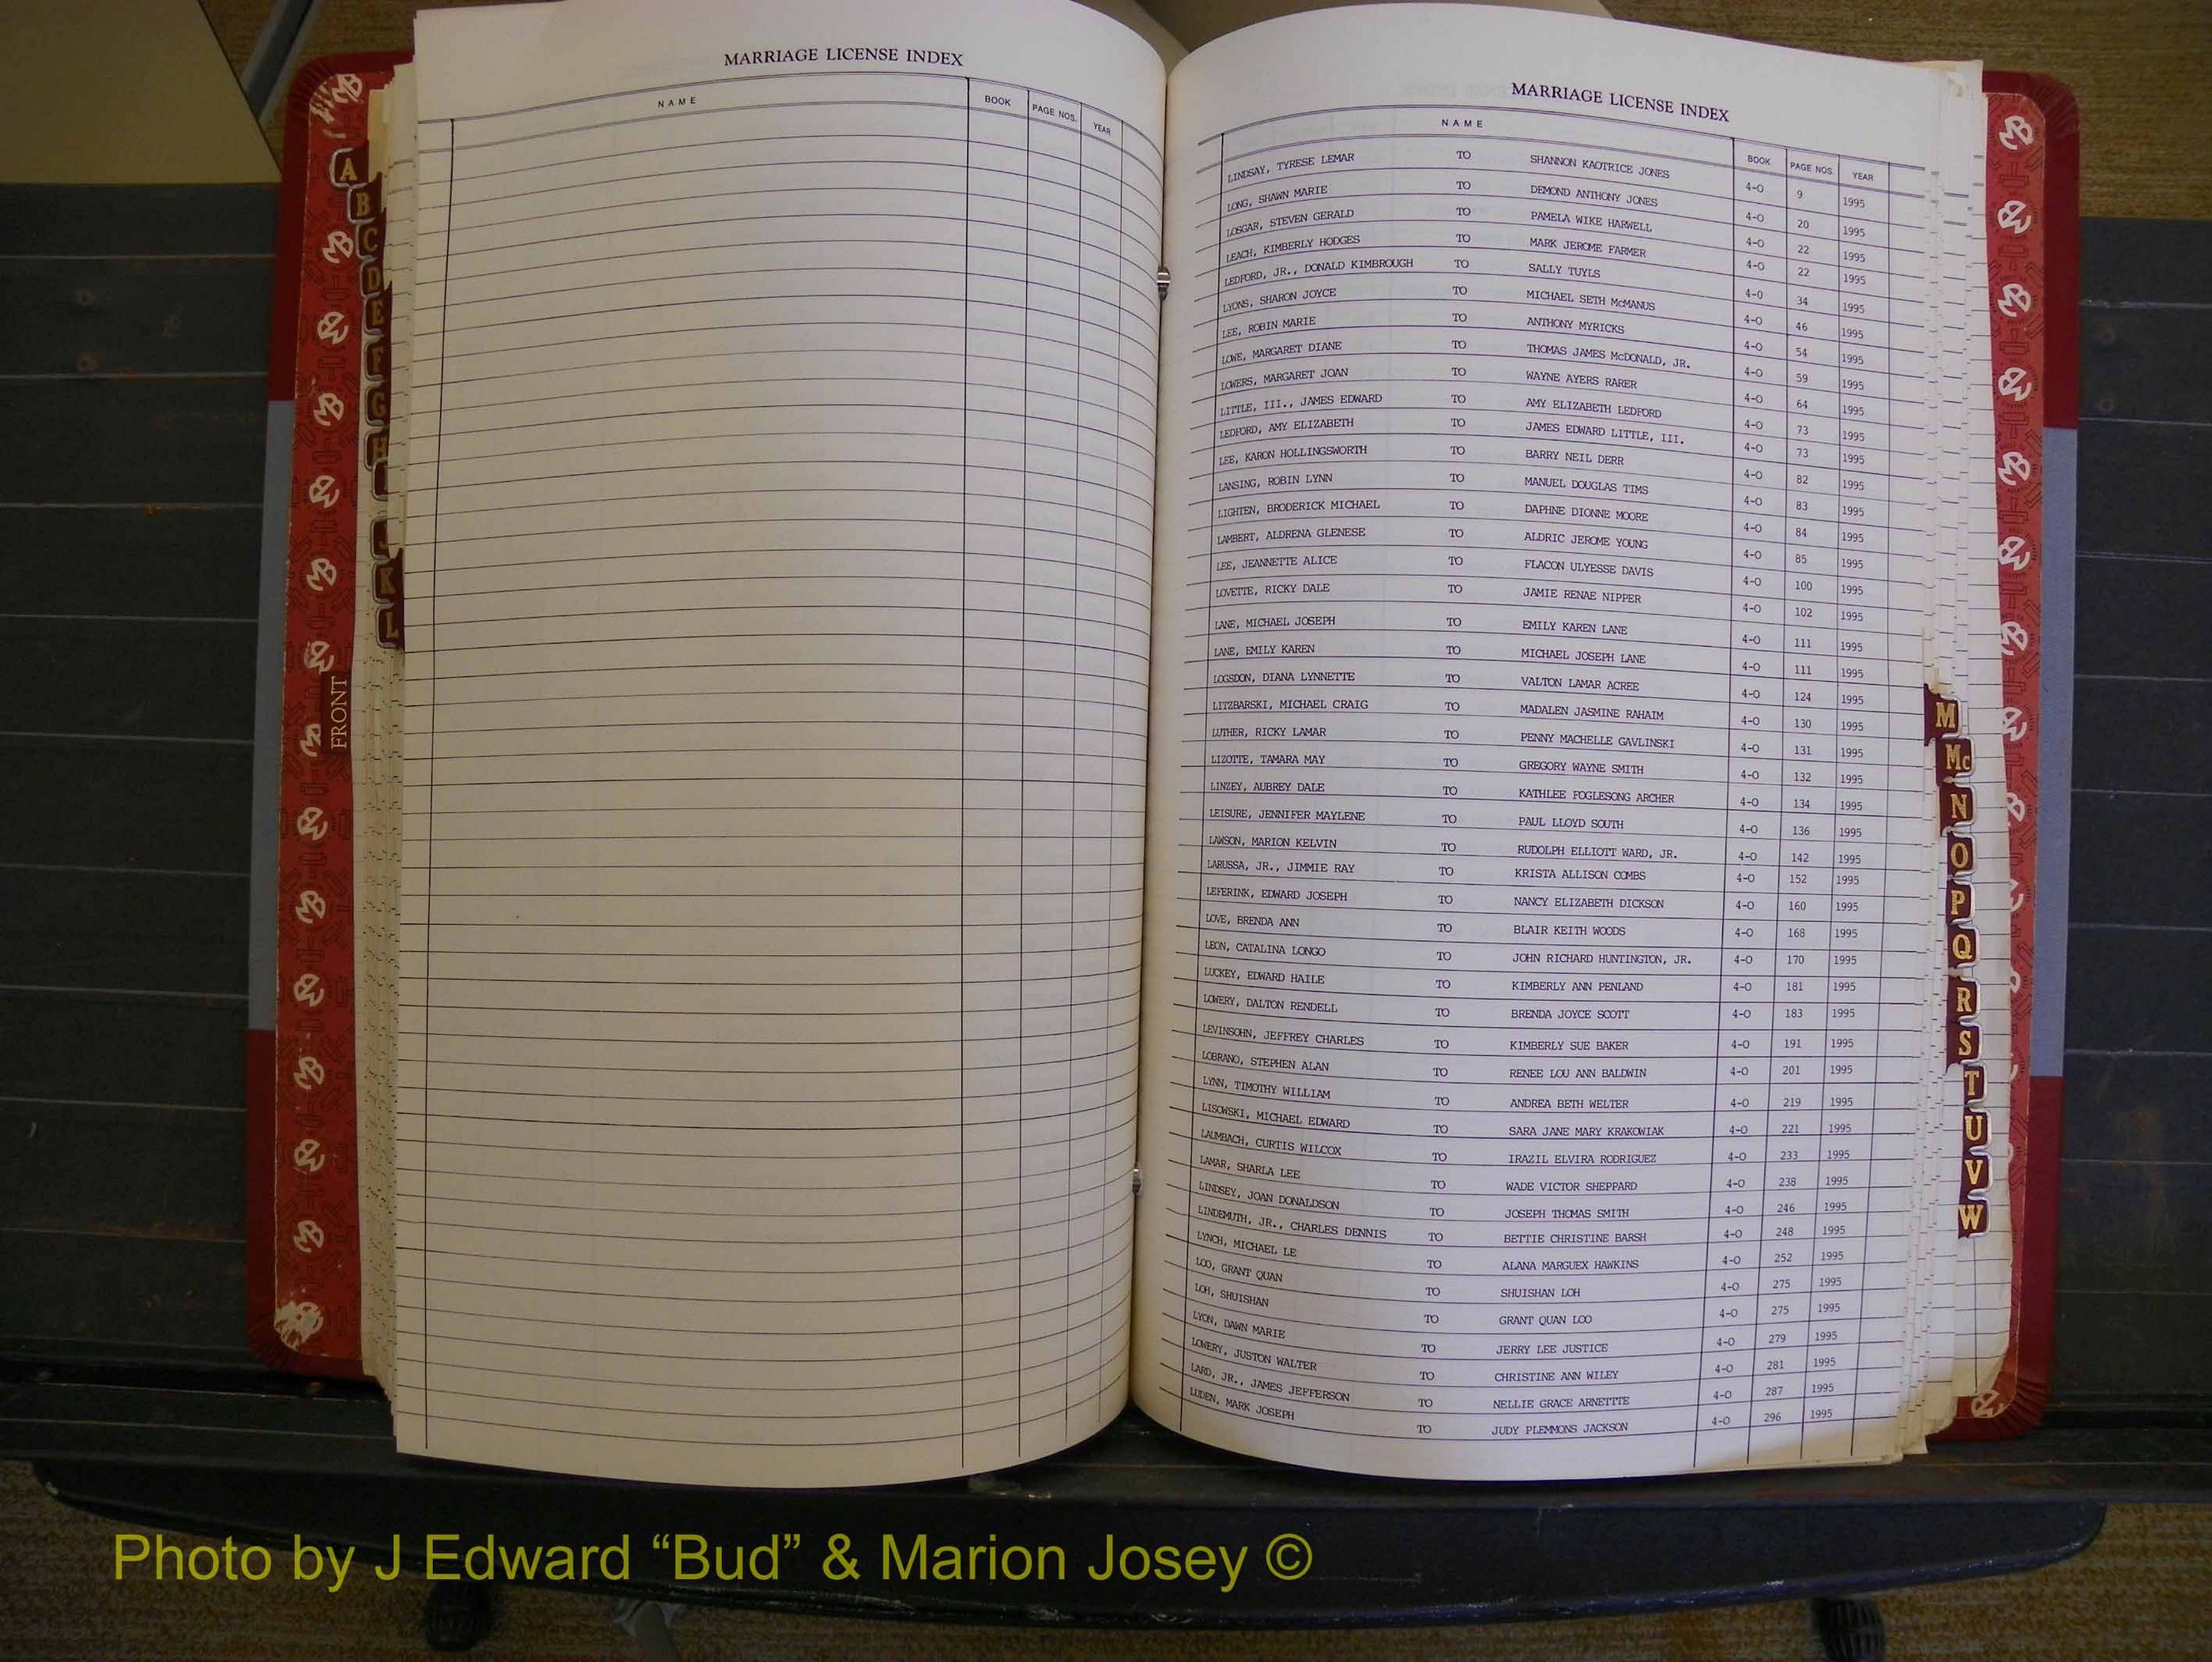 MARRIAGE LICENSE INDEX
NAME BOOK PAGE NOS. YEAR
A
B
C
D
E
F
G
H
I
J
K
L
FRONT
MARRIAGE LICENSE INDEX
NAME BOOK PAGE NOS. YEAR
LINDSAY, TYRESE LEMAR TO SHANNON KAOTRICE JONES 4-O 9 1995
LONG, SHAWN MARIE TO DEMOND ANTHONY JONES 4-O 20 1995
LOSGAR, STEVEN GERALD TO PAMELA WIKE HARWELL 4-O 22 1995
LEACH, KIMBERLY HODGES TO MARK JEROME FARMER 4-O 22 1995
LEDFORD, JR., DONALD KIMBROUGH TO SALLY TUYLS 4-O 34 1995
LYONS, SHARON JOYCE TO MICHAEL SETH McMANUS 4-O 46 1995
LEE, ROBIN MARIE TO ANTHONY MYRICKS 4-O 54 1995
LOWE, MARGARET DIANE TO THOMAS JAMES McDONALD, JR. 4-O 59 1995
LOWERS, MARGARET JOAN TO WAYNE AYERS RARER 4-O 64 1995
LITTLE, III., JAMES EDWARD TO AMY ELIZABETH LEDFORD 4-O 73 1995
LEDFORD, AMY ELIZABETH TO JAMES EDWARD LITTLE, III. 4-O 73 1995
LEE, KARON HOLLINGSWORTH TO BARRY NEIL DERR 4-O 82 1995
LANSING, ROBIN LYNN TO MANUEL DOUGLAS TIMS 4-O 83 1995
LIGHTEN, BRODERICK MICHAEL TO DAPHNE DIONNE MOORE 4-O 84 1995
LAMBERT, ALDRENA GLENESE TO ALDRIC JEROME YOUNG 4-O 85 1995
LEE, JEANNETTE ALICE TO FLACON ULYESSE DAVIS 4-O 100 1995
LOVETTE, RICKY DALE TO JAMIE RENAE NIPPER 4-O 102 1995
LANE, MICHAEL JOSEPH TO EMILY KAREN LANE 4-O 111 1995
LANE, EMILY KAREN TO MICHAEL JOSEPH LANE 4-O 111 1995
LOGSDON, DIANA LYNNETTE TO VALTON LAMAR ACREE 4-O 124 1995
LITZBARSKI, MICHAEL CRAIG TO MADALEN JASMINE RAHAIM 4-O 130 1995
LUTHER, RICKY LAMAR TO PENNY MACHELLE GAVLINSKI 4-O 131 1995
LIZOTTE, TAMARA MAY TO GREGORY WAYNE SMITH 4-O 132 1995
LINZEY, AUBREY DALE TO KATHLEE FOGLESONG ARCHER 4-O 134 1995
LEISURE, JENNIFER MAYLENE TO PAUL LLOYD SOUTH 4-O 136 1995
LAWSON, MARION KELVIN TO RUDOLPH ELLIOTT WARD, JR. 4-O 142 1995
LARUSSA, JR., JIMMIE RAY TO KRISTA ALLISON COMBS 4-O 152 1995
LEFERINK, EDWARD JOSEPH TO NANCY ELIZABETH DICKSON 4-O 160 1995
LOVE, BRENDA ANN TO BLAIR KEITH WOODS 4-O 168 1995
LEON, CATALINA LONGO TO JOHN RICHARD HUNTINGTON, JR. 4-O 170 1995
LUCKEY, EDWARD HAILE TO KIMBERLY ANN PENLAND 4-O 181 1995
LOWERY, DALTON RENDELL TO BRENDA JOYCE SCOTT 4-O 183 1995
LEVINSOHN, JEFFREY CHARLES TO KIMBERLY SUE BAKER 4-O 191 1995
LOBRANO, STEPHEN ALAN TO RENEE LOU ANN BALDWIN 4-O 201 1995
LYNN, TIMOTHY WILLIAM TO ANDREA BETH WELTER 4-O 219 1995
LISOWSKI, MICHAEL EDWARD TO SARA JANE MARY KRAKOWIAK 4-O 221 1995
LAUMBACH, CURTIS WILCOX TO IRAZIL ELVIRA RODRIGUEZ 4-O 233 1995
LAMAR, SHARLA LEE TO WADE VICTOR SHEPPARD 4-O 238 1995
LINDSEY, JOAN DONALDSON TO JOSEPH THOMAS SMITH 4-O 246 1995
LINDEMUTH, JR., CHARLES DENNIS TO BETTIE CHRISTINE BARSH 4-O 248 1995
LYNCH, MICHAEL LE TO ALANA MARGUEX HAWKINS 4-O 252 1995
LOO, GRANT QUAN TO SHUISHAN LOH 4-O 275 1995
LOH, SHUISHAN TO GRANT QUAN LOO 4-O 275 1995
LYON, DAWN MARIE TO JERRY LEE JUSTICE 4-O 279 1995
LOWERY, JUSTON WALTER TO CHRISTINE ANN WILEY 4-O 281 1995
LARD, JR., JAMES JEFFERSON TO NELLIE GRACE ARNETTE 4-O 287 1995
LUDEN, MARK JOSEPH TO JUDY PLEMMONS JACKSON 4-O 296 1995
M
Mc
N
O
P
Q
R
S
T
U
V
W
Photo by J Edward “Bud” & Marion Josey ©